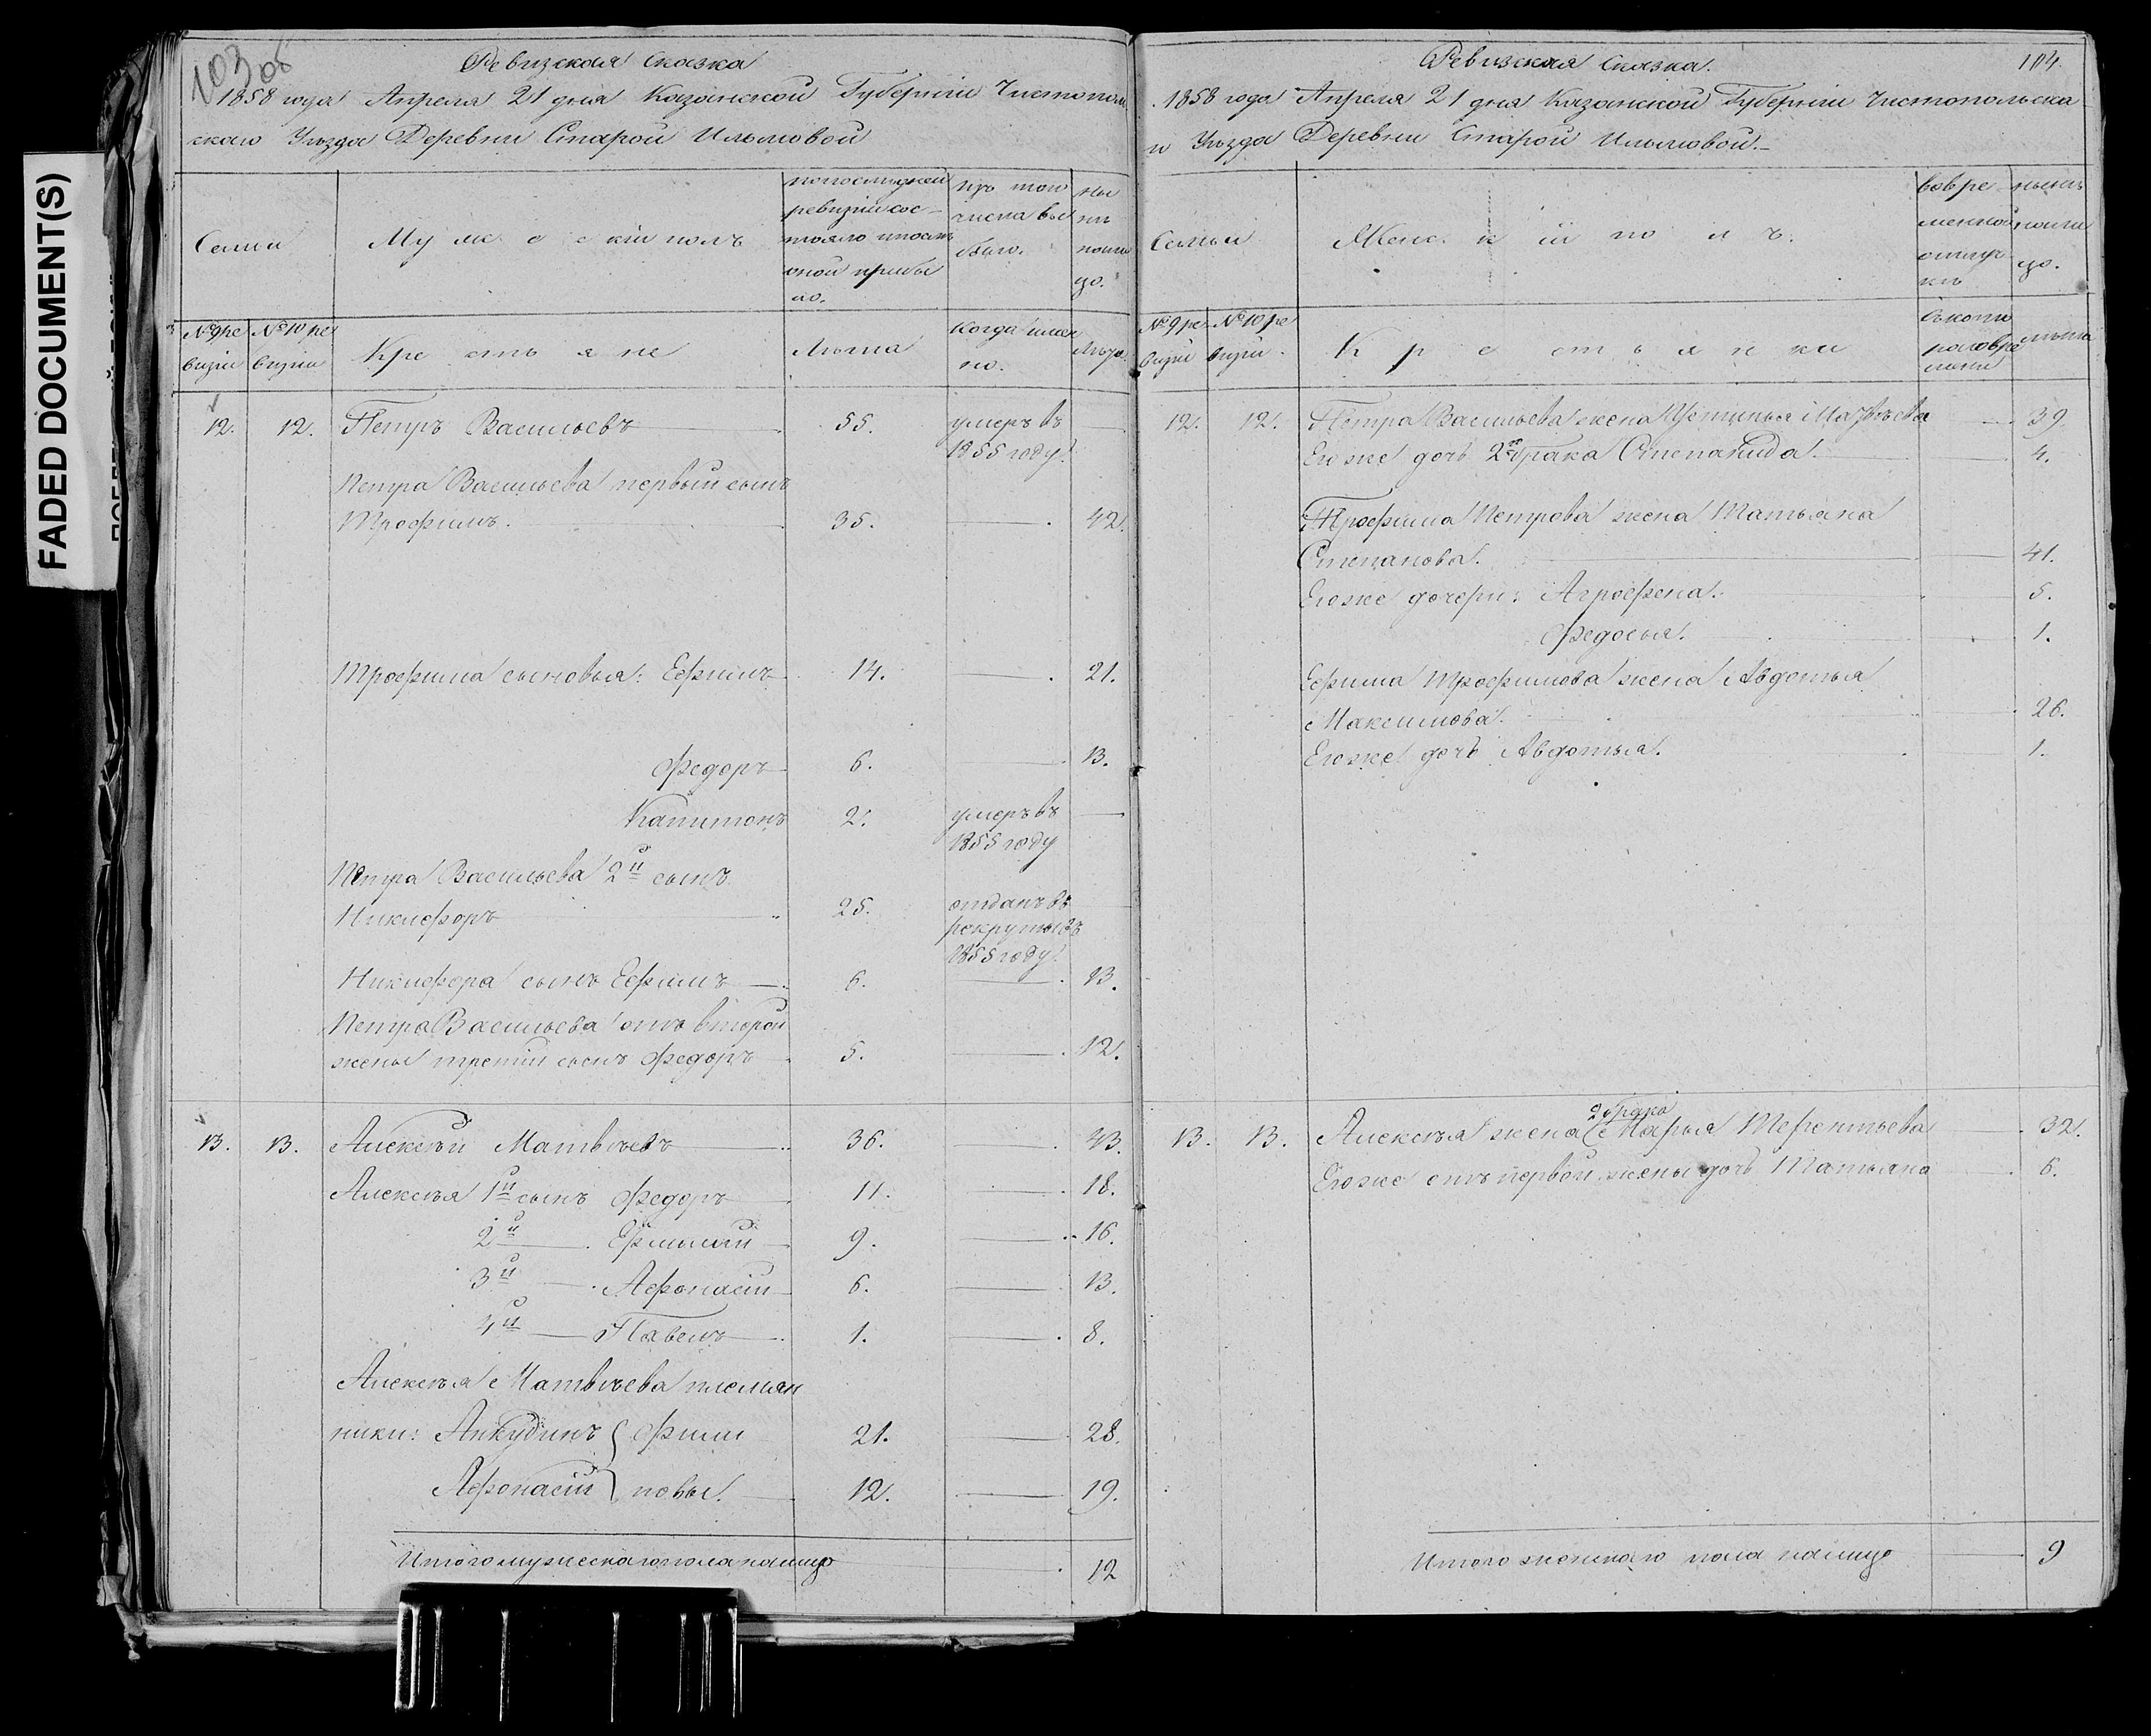 FADED DOCUMENT(S)
103 об
Ревизская Сказка
1858 года Апреля 21 дня Казанской Губерніи Чистополь
скаго Уѣзда Деревни Старой Ильмовой
Семьи
Мужескій полъ
по последней
ревизіи сос-
тояло и посль
оной прибы
ло.
изъ того
числа вы
было.
ны
нѣ
нали
цо.
№ 9 ре
визіи
№ 10 ре
визіи
Крестьяне
Лѣта
Когда имен
но.
Лѣта
12. 12. Петръ Васильевъ 55. умеръ въ
1855 году.
Петра Васильева первый сынъ
Трофимъ. 35. 42.
Трофима сыновья: Ефимъ 14. 21.
Федоръ 6. 13.
Капитонъ 2. умеръ въ
1855 году
Петра Васильева 2й сынъ
Никифоръ 25. отданъ въ
рекруты въ
1855 году.
Никифора сынъ Ефимъ 6. 13.
Петра Васильева отъ второй
жены третій сынъ Федоръ 5. 12.
13. 13. Алексѣй Матвѣевъ 36. 43.
Алексѣя 1й сынъ Федоръ 11. 18.
2й Ермилъ 9. 16.
3й Афонасій 6. 13.
4й Павелъ 1. 8.
Алексѣя Матвѣева племян
ники: Анкудинъ } Фили 21. 28.
Афонасій } повы. 12. 19.
Итого мужескаго пола налицо 12
104
Ревизская Сказка.
1858 года Апреля 21 дня Казанской Губерніи Чистопольска
го Уѣзда Деревни Старой Ильмовой.
Семьи
Женскій полъ.
во вре-
менной
отлуч
кѣ
нынѣ
нали
цо.
№ 9 ре
визіи
№ 10 ре
визіи.
Крестьянки
съ кото
раго вре
мени
лѣта
12. 12. Петра Васильева жена Устинья Матвѣева 39.
Его же дочь 2го брака Степанида. 4.
Трофима Петрова жена Татьяна
Степанова. 41.
Его же дочери: Агрофена. 5.
Федосья. 1.
Ефима Трофимова жена Авдотья
Максимова. 26.
Его же дочь Авдотья. 1.
2 брака
13. 13. Алексѣя жена Марья Терентьева 32.
Его же отъ первой жены дочь Татьяна 6.
Итого женскаго пола налицо 9